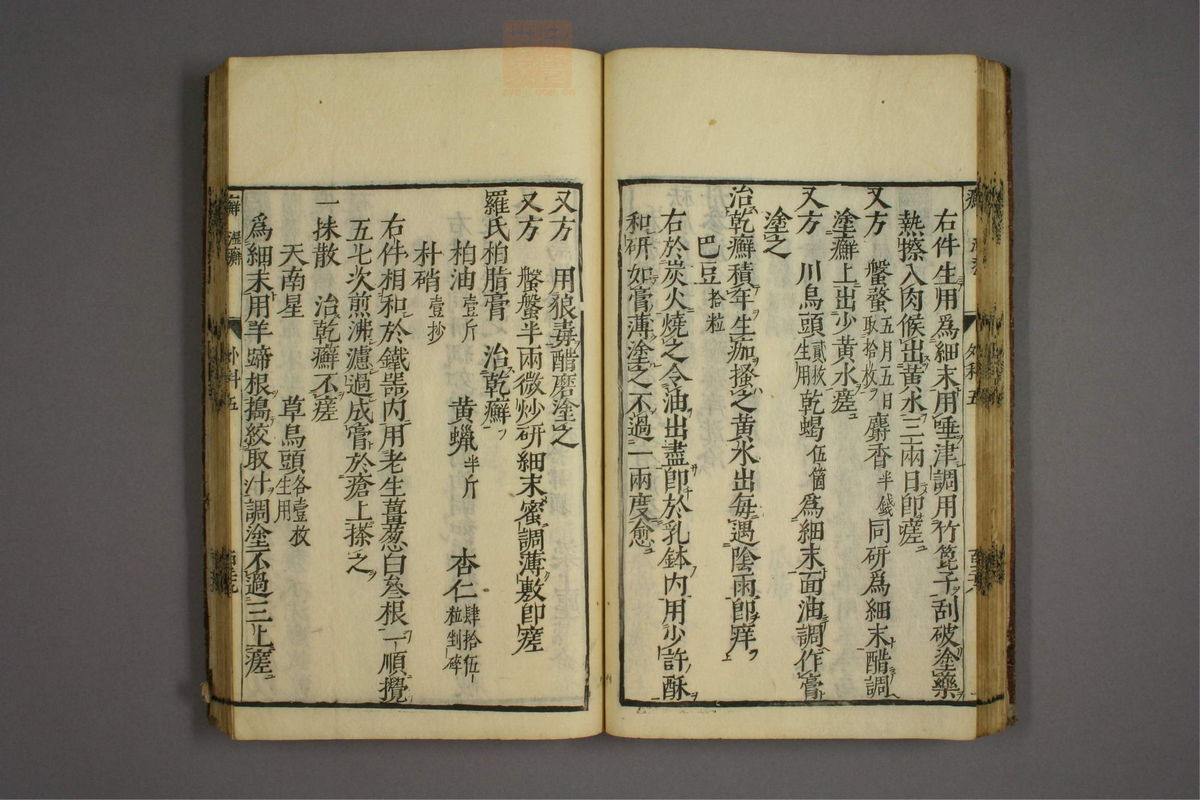 右件生用爲細末用唾津調用竹篦子刮破塗藥
熱擦入肉候出黃水三兩日即瘥
又方　盤蝥五月五日取拾枚　麝香半錢　同研爲細末醋調
塗癬上出少黃水瘥
又方　川烏頭貳枚生用　乾蝎伍箇　爲細末面油調作膏
塗之
治乾癬積年生痂搔之黃水出每遇陰雨即痒
巴豆拾粒
右於炭火燒之令油出盡即於乳鉢內用少許酥
和研如膏薄塗之不過一兩度愈
外科五
又方　用狼毒醋磨塗之
又方　盤蝥半兩微炒研細末蜜調薄敷即瘥
羅氏柏脂膏　治乾癬
柏油壹斤　黃蠟半斤　杏仁肆拾伍粒剉碎
朴硝壹抄
右件相和於鐵器內用老生薑葱白叁根一順攪
五七次煎沸濾過成膏於瘡上搽之
一抹散　治乾癬不瘥
天南星　草烏頭各壹枚生用
爲細末用羊蹄根搗絞取汁調塗不過三上瘥
癬　溼癬　外科五